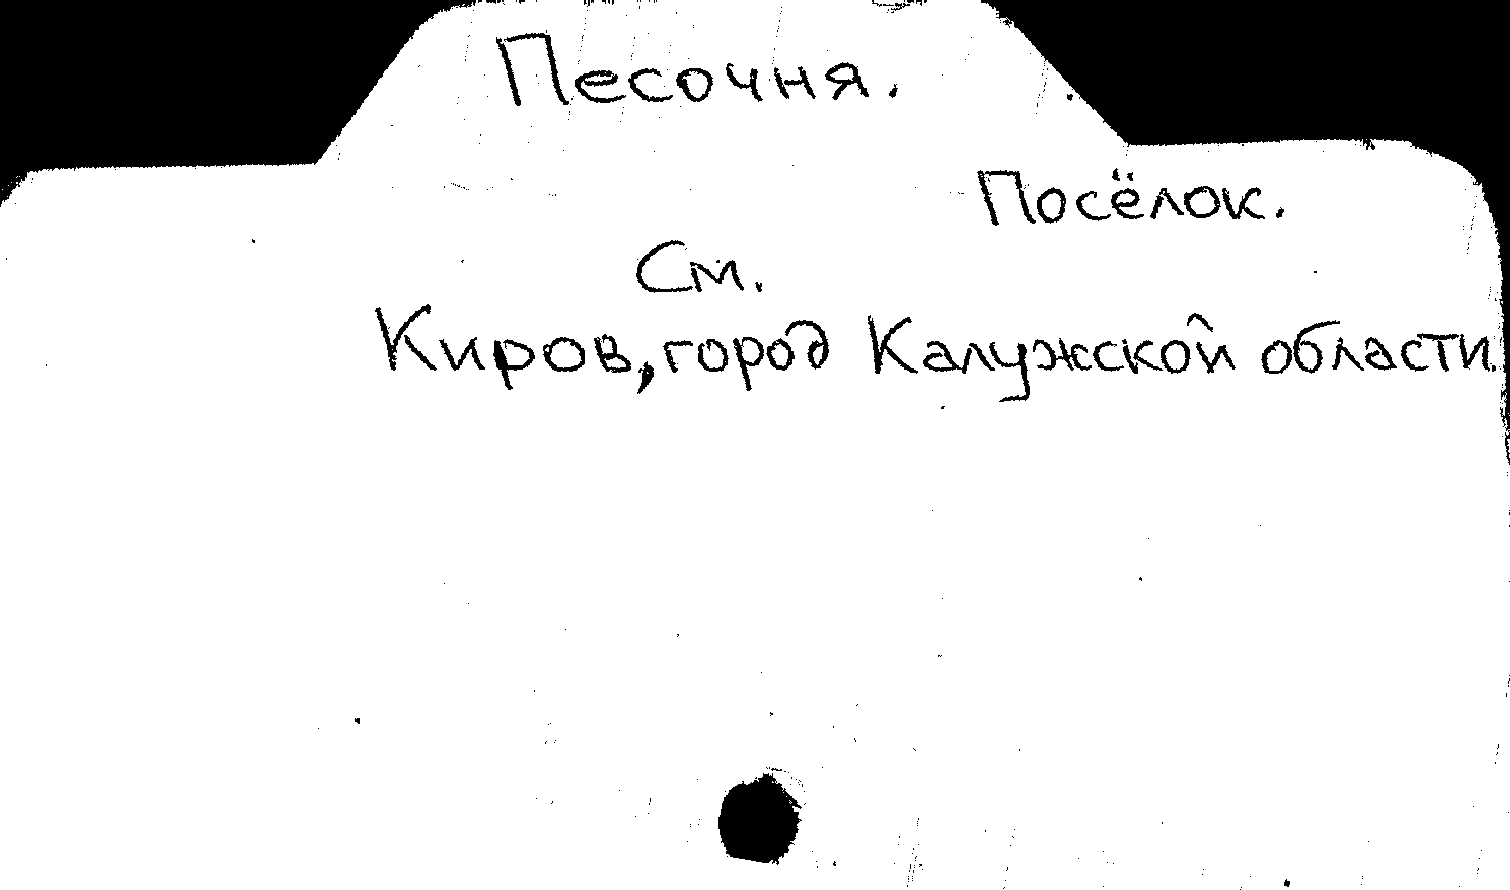 Песочня.
Посёлок.
См.
Киров, город Калужской области.